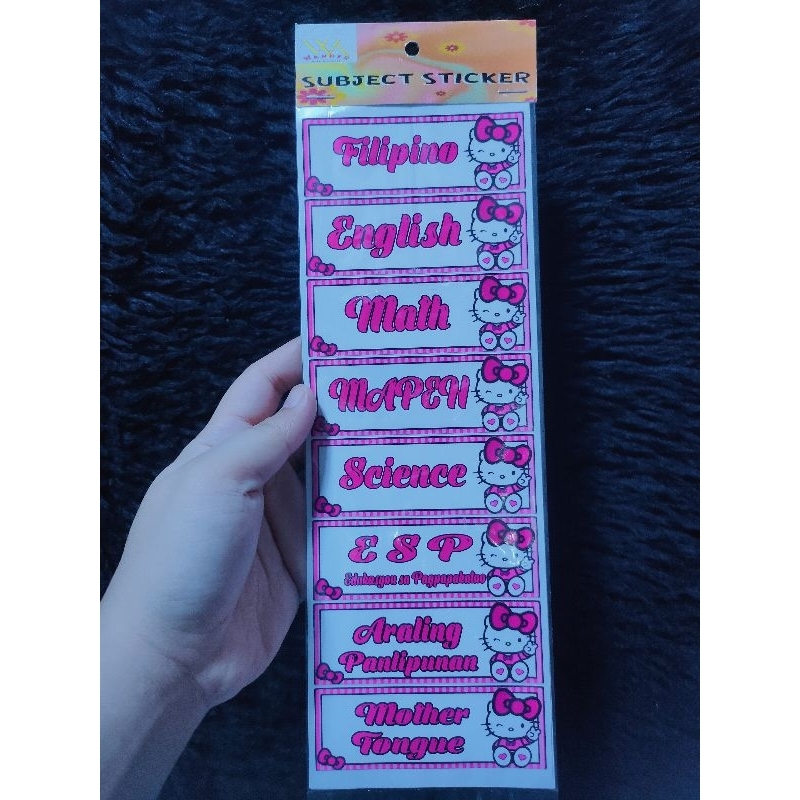 SUBJECT STICKER
Filipino
English
Math
MAPEH
Science
E S P
Edukasyon sa Pagpapakatao
Araling
Panlipunan
Mother
Tongue